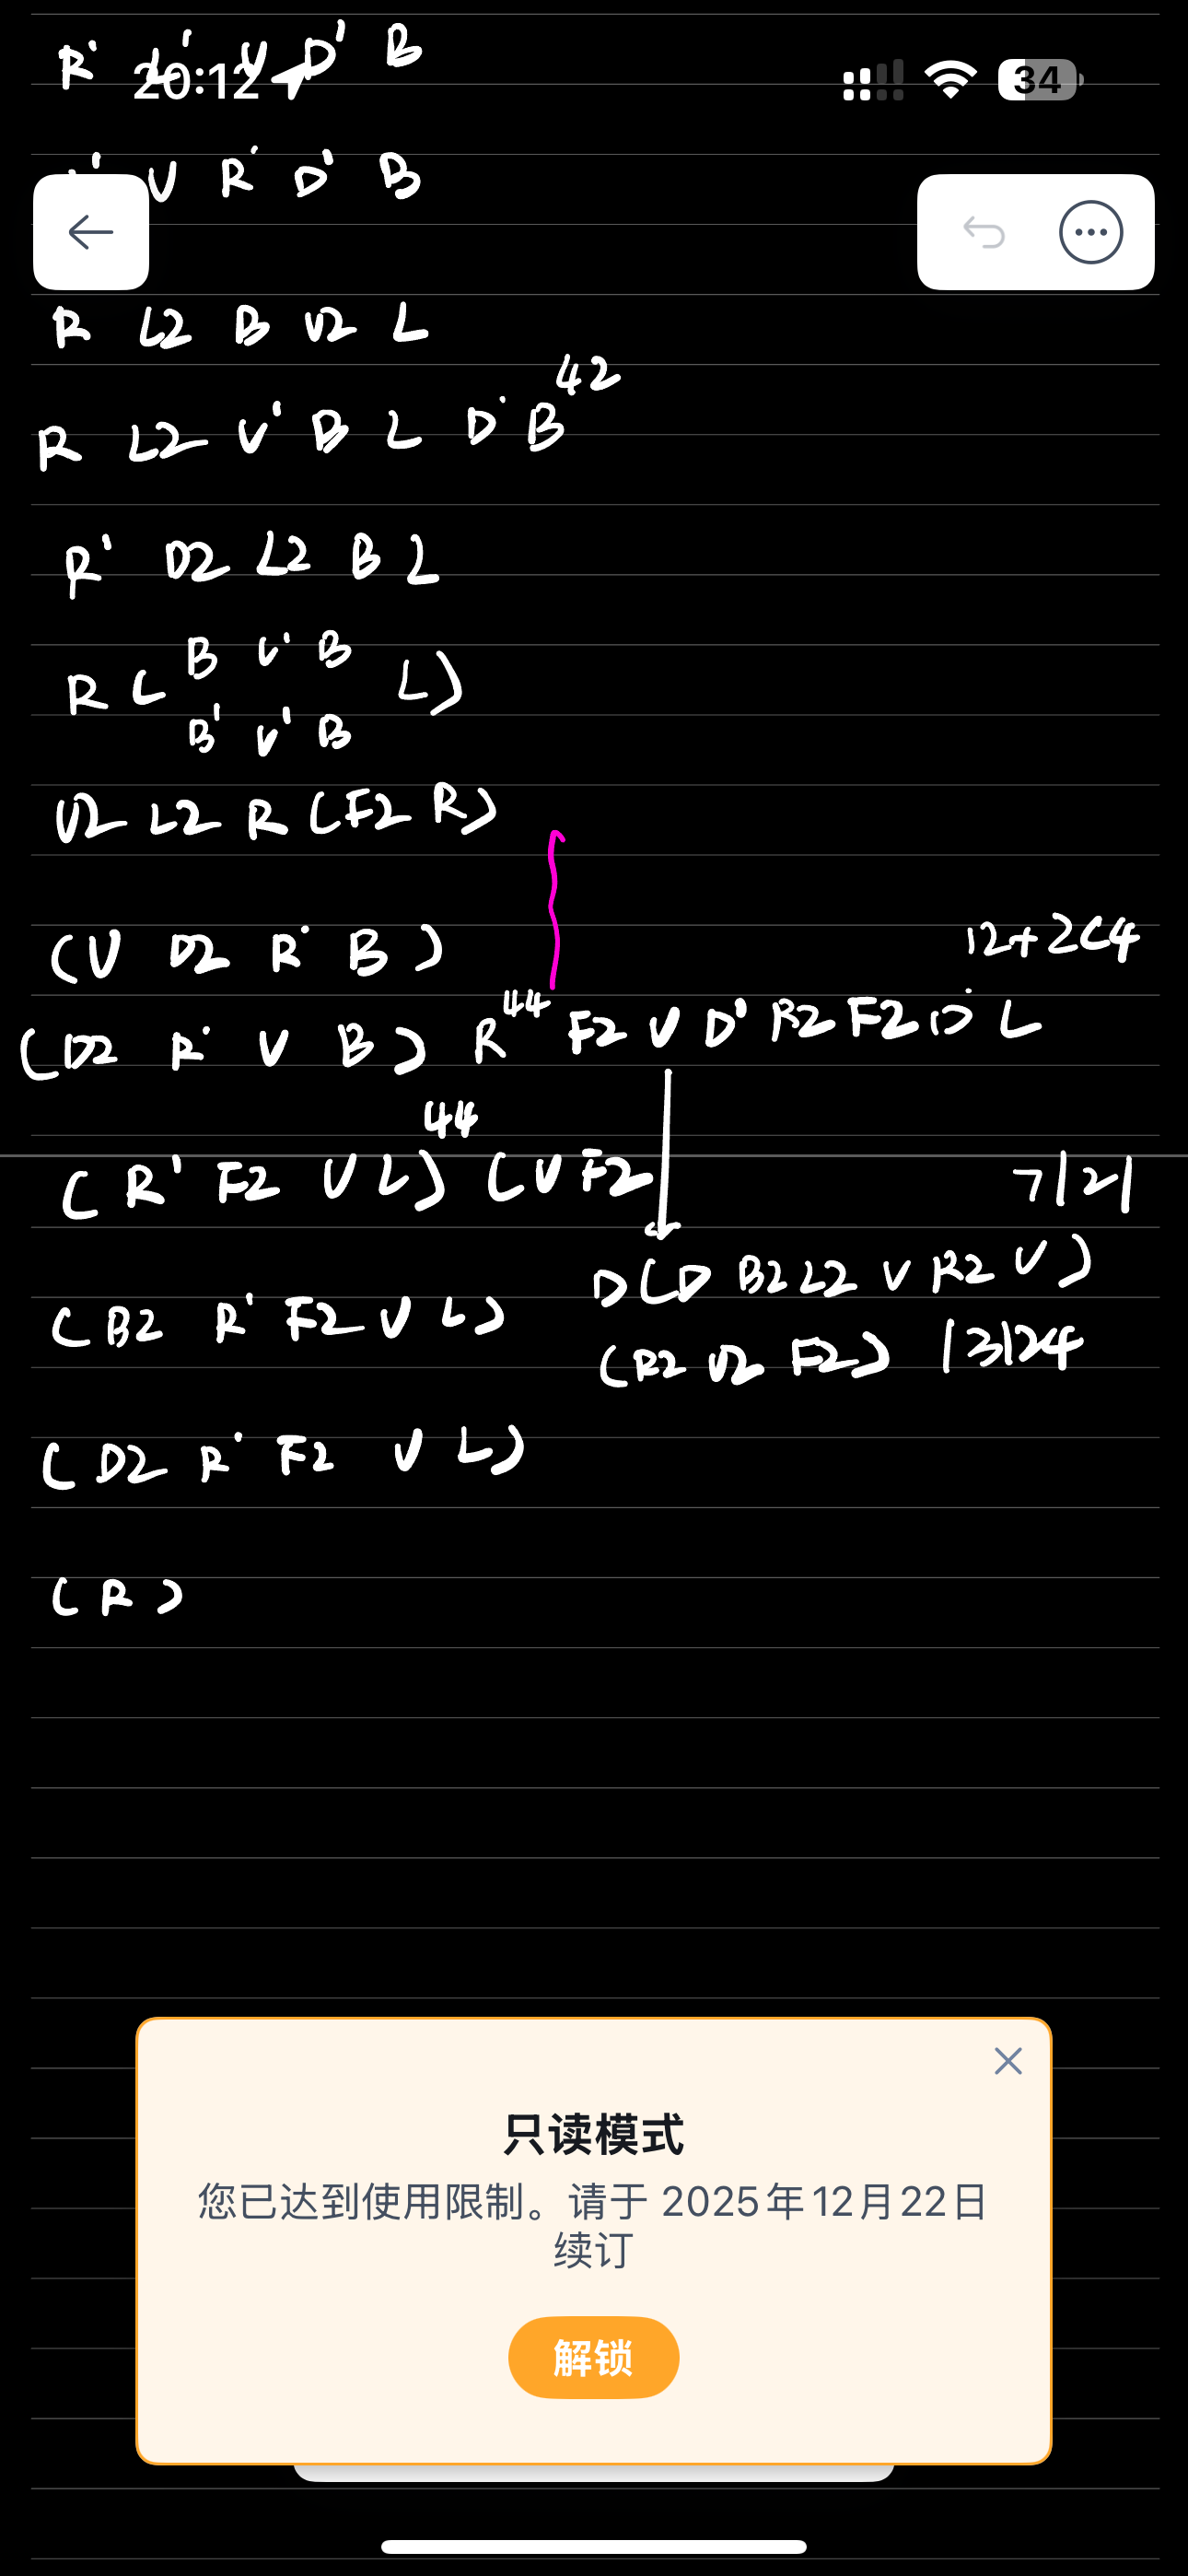 R' L' U D' B
20:12
34
' U R' D' B
R L2 B U2 L
R L2 U' B L D' B 42
R' D2 L2 B L
R ( B U' B L)
B' U' B
U2 L2 R (F2 R)
(U D2 R' B)
12+2C4
(D2 R' U B) R 44 F2 U D' R2 F2 D' L
(R' F2 U L) 44 (U F2
7/21
(B2 R' F2 U L)
D(D B2 L2 U R2 U)
(R2 U2 F2) 13/24
(D2 R' F2 U L)
(R)
只读模式
您已达到使用限制。请于 2025年12月22日
续订
解锁